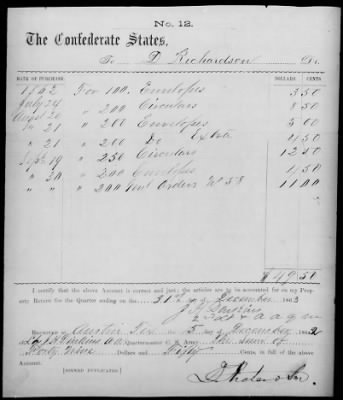 No. 12.
The Confederate States,
To D Richardson Dr.
DATE OF PURCHASE. DOLLARS CENTS
1862 For 100 Envelopes 3 50
July 24 " 200 Circulars 8 50
Augst 20 " 200 Envelopes 5 00
" 21 " 200 Do Extra
Sept 19 " 250 Circulars 12 50
" 20 " 200 Envelopes 4 50
" " " 200 Orders No 58 11 00
$49.50
I certify that the above Account is correct and just; the articles are to be accounted for on my Prop-
erty Return for the Quarter ending on the 31st of December 1863
RECEIVED at Austin Tex the 5 of December, 1862
of Quartermaster C. S. Army the sum of
Forty Nine Dollars and Fifty Cents, in full of the above
Account.
[SIGNED DUPLICATES.]